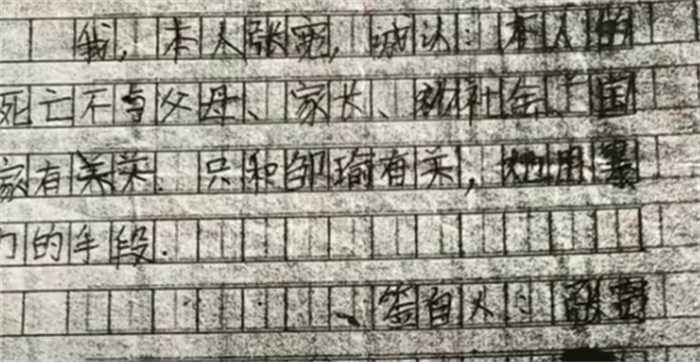 我，本人张宽，诚认：本人的
死亡不与父母、家长、和社会、国
家有关关．只和邹瑜有关，她用暴
力的手段．
签自人：张宽